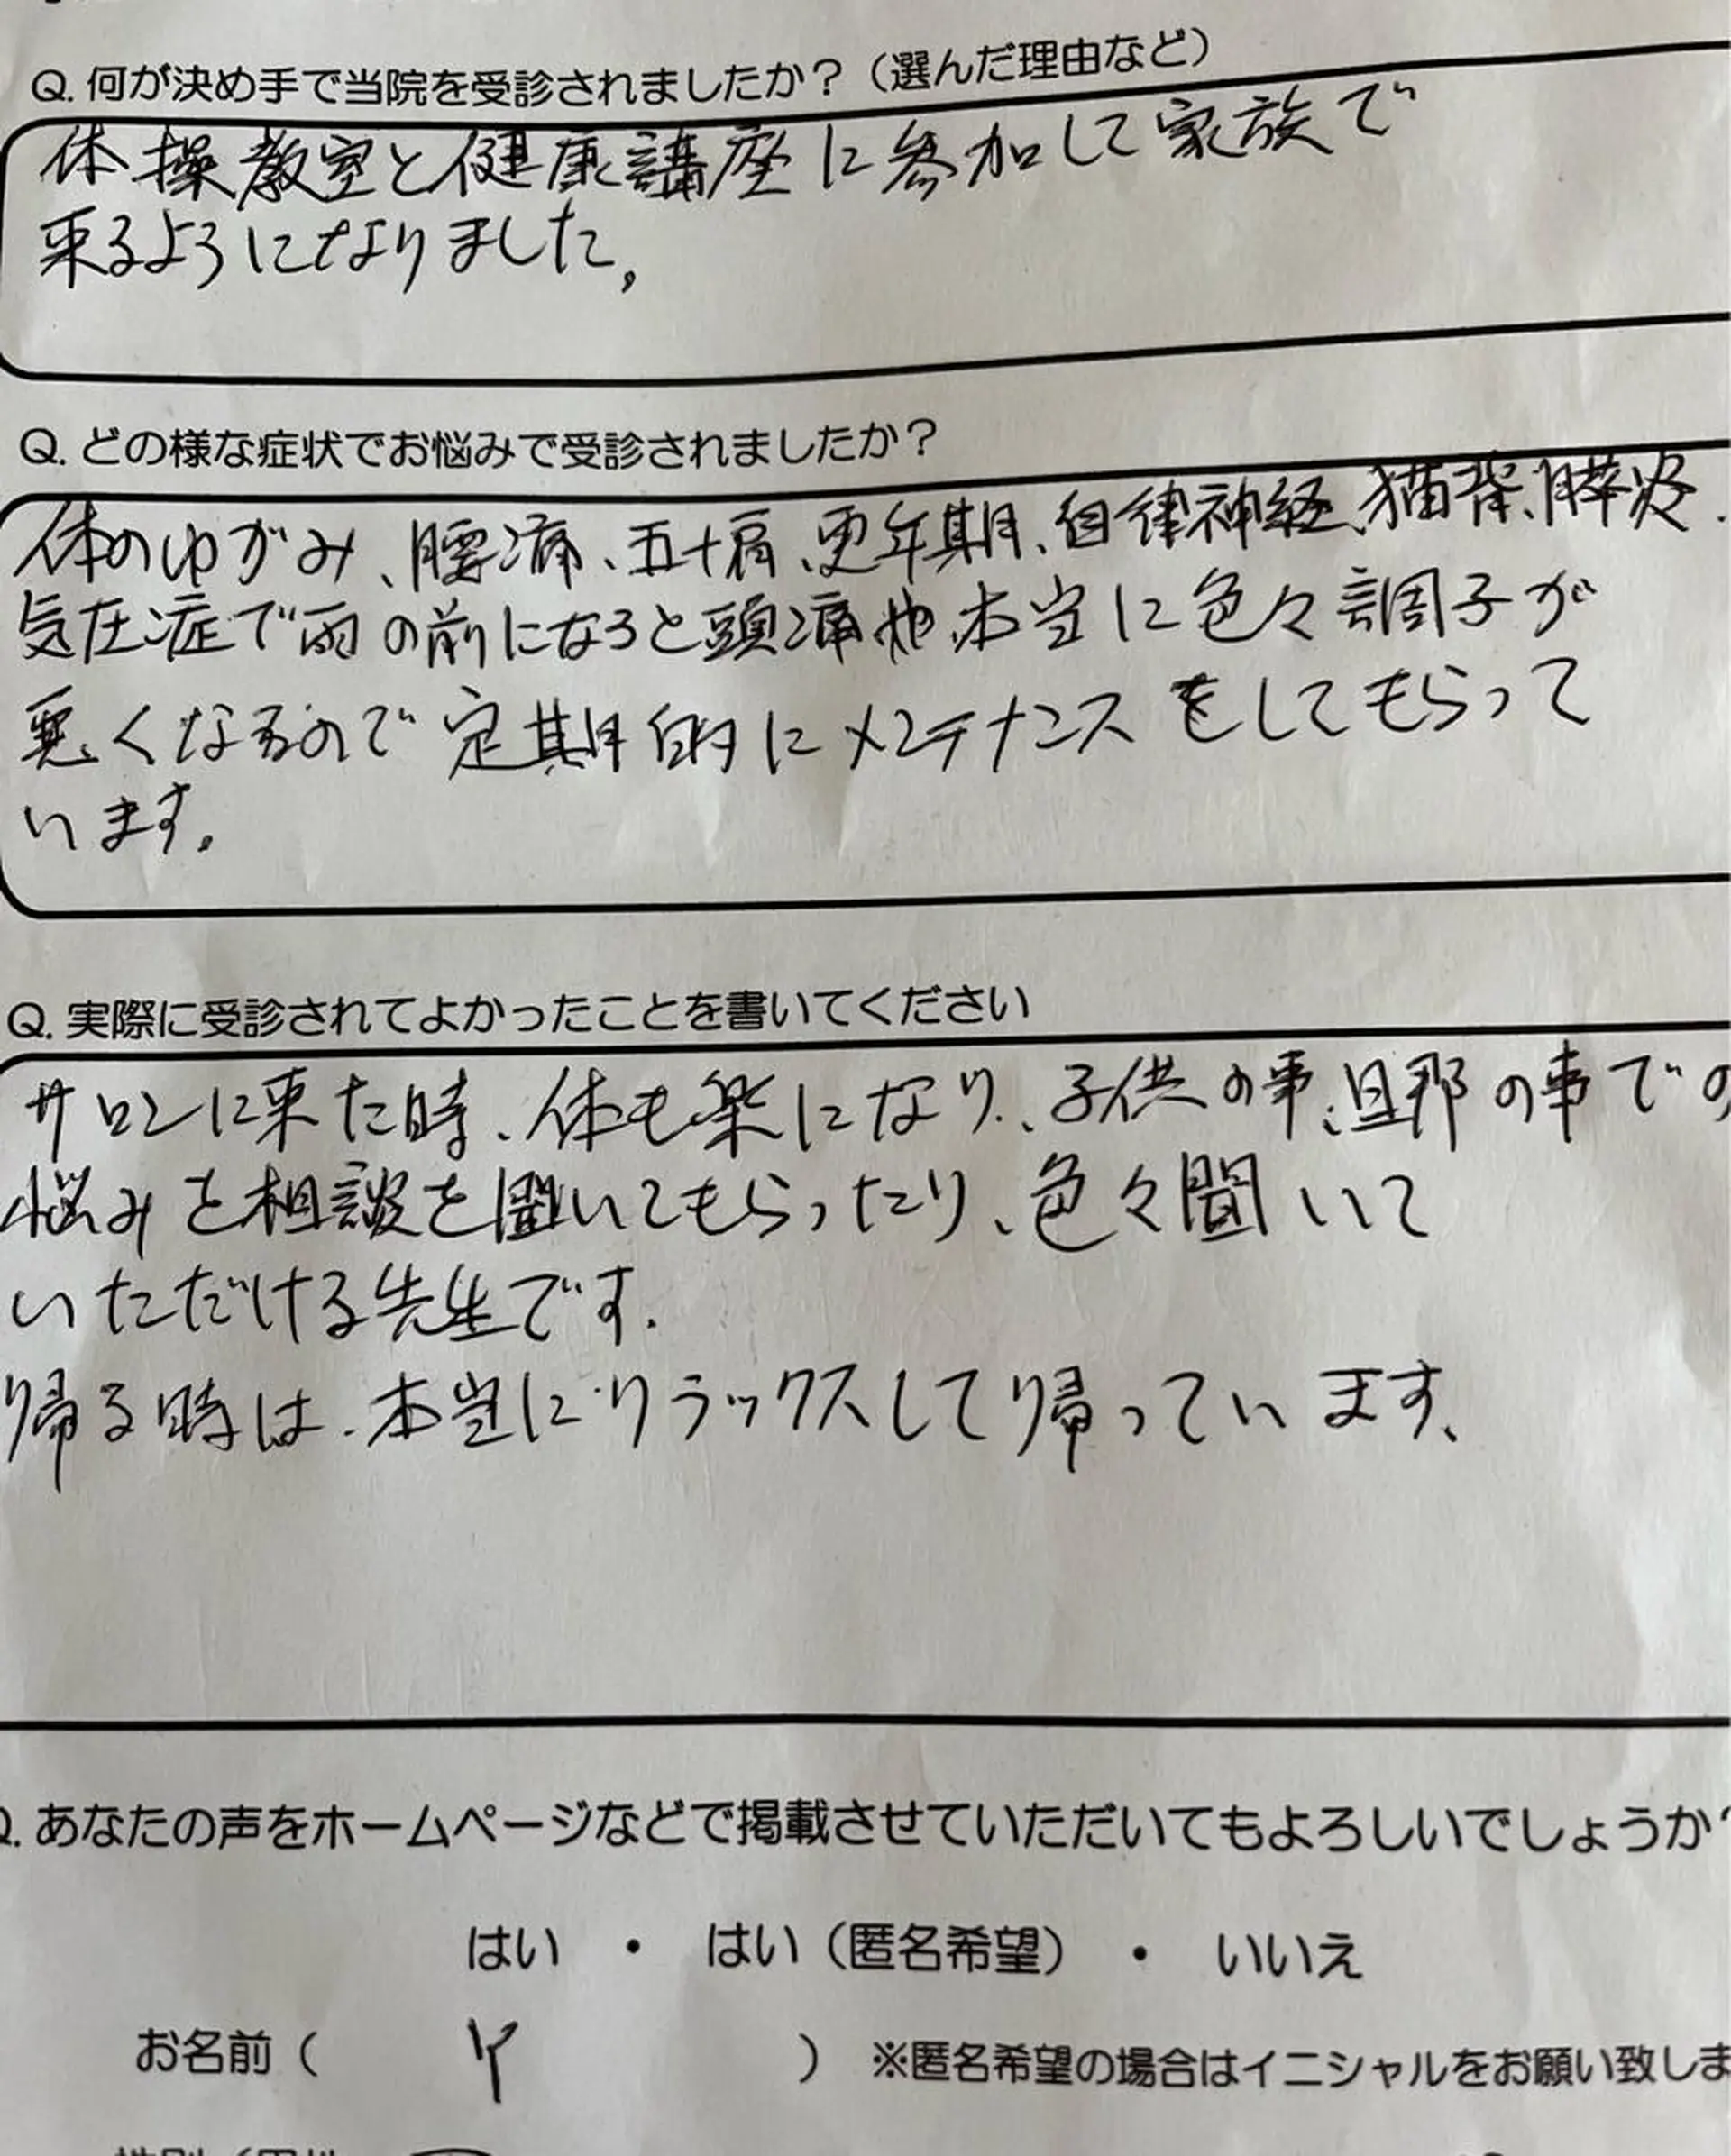 Q. 何が決め手で当院を受診されましたか？（選んだ理由など）
体操教室と健康講座に参加して家族で
来るようになりました。
Q. どの様な症状でお悩みで受診されましたか？
体のゆがみ、腰痛、五十肩、更年期、自律神経、猫背、膵炎、
気圧症で雨の前になると頭痛や本当に色々調子が
悪くなるので定期的にメンテナンスをしてもらって
います。
Q. 実際に受診されてよかったことを書いてください
サロンに来た時、体も楽になり、子供の事、旦那の事での
悩みを相談を聞いてもらったり、色々聞いて
いただける先生です。
帰る時は、本当にリラックスして帰っています。
Q. あなたの声をホームページなどで掲載させていただいてもよろしいでしょうか？
はい ・ はい（匿名希望） ・ いいえ
お名前（ Y ） ※匿名希望の場合はイニシャルをお願い致しま